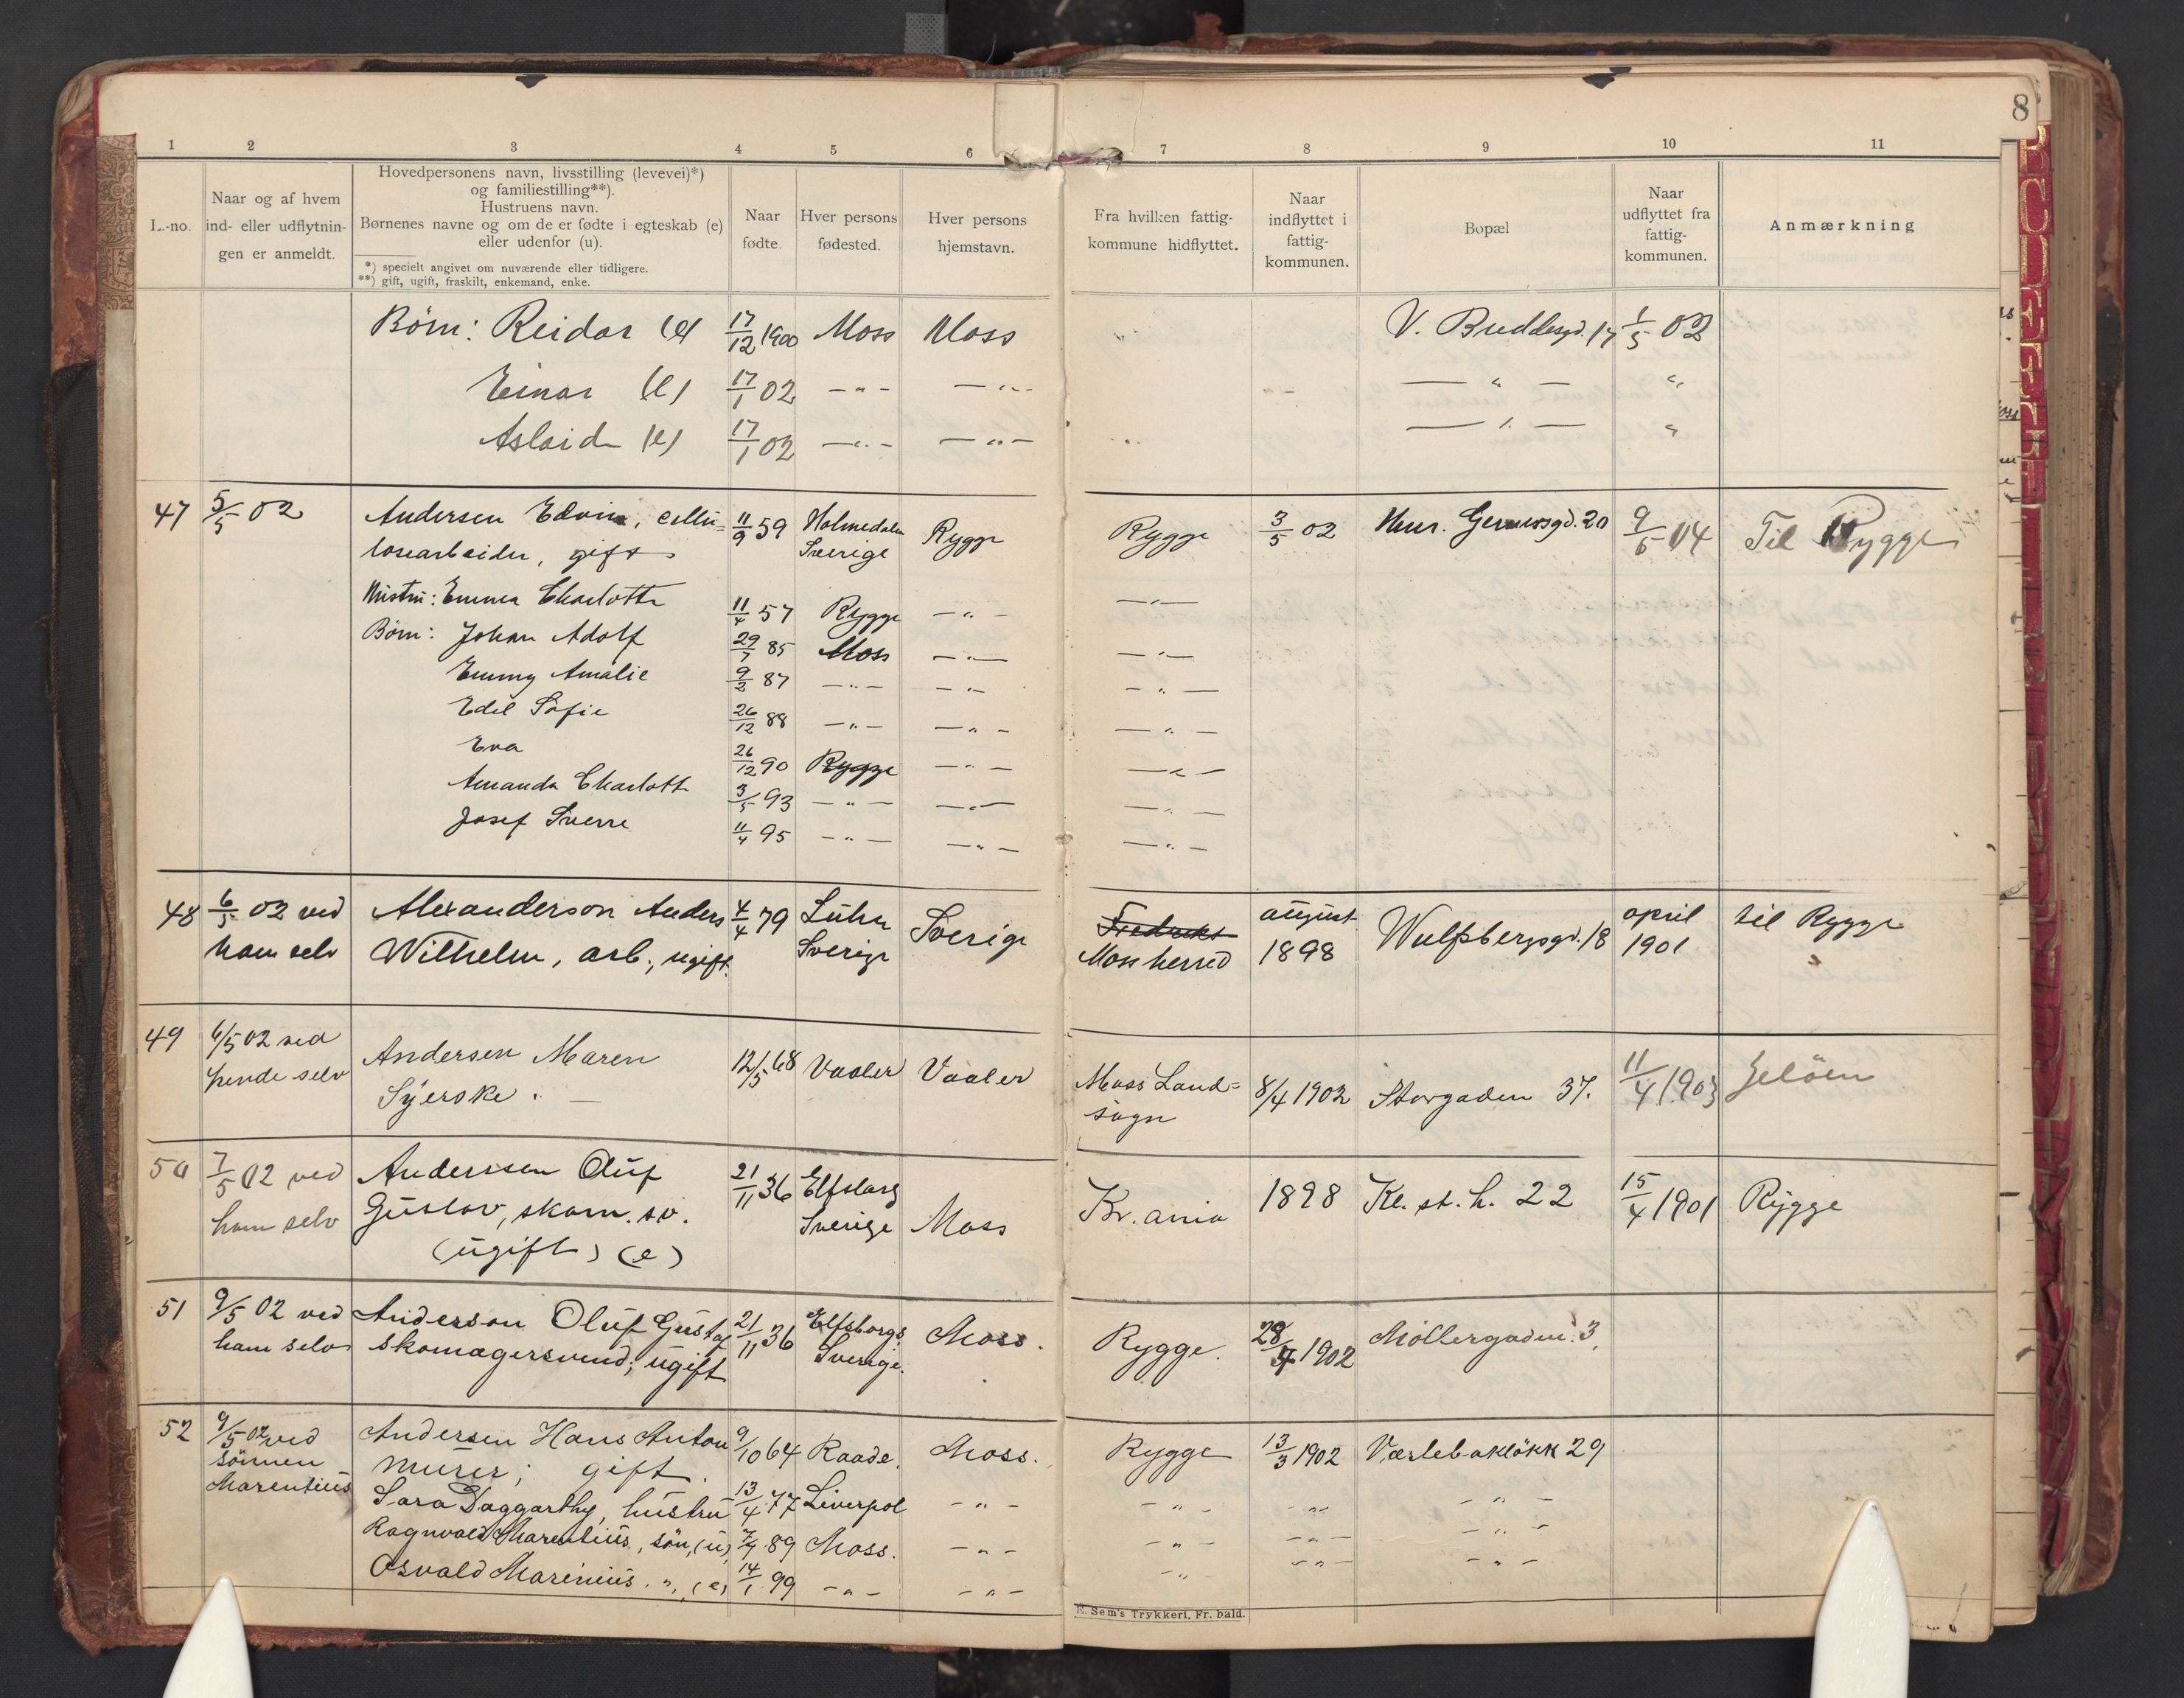 8
1 2 3 4 5 6 7 8 9 10 11
L.-no.
Naar og af hvem
ind- eller udflytnin-
gen er anmeldt.
Hovedpersonens navn, livsstilling (levevei)*)
og familiestilling**).
Hustruens navn.
Børnenes navne og om de er fødte i egteskab (e)
eller udenfor (u).
*) specielt angivet om nuværende eller tidligere.
**) gift, ugift, fraskilt, enkemand, enke.
Naar
fødte.
Hver persons
fødested.
Hver persons
hjemstavn.
Fra hvilken fattig-
kommune hidflyttet.
Naar
indflyttet i
fattig-
kommunen.
Bopæl
Naar
udflyttet fra
fattig-
kommunen.
Anmærkning
Börn: Reidar (e) 17/12 1900 Moss Moss V. Buddesgd. 17 1/5 02
Einar (e) 17/1 02 - " - - " - - " - "
Aslaid (e) 17/1 02 - " - - " - - " - "
47 5/5 02 Andersen Edvin, cellu= 11/9 59 Holmedalen Rygge Rygge 3/5 02 Hnr. Gernersgd. 20 9/5 04 Til Rygge
losearbeider, gift Sverige
Hustru: Emma Charlotte 11/4 57 Rygge - " - - " -
Börn: Johan Adolf 29/7 85 Moss - " - - " -
Emmy Amalie 9/2 87 - " - - " - - " -
Edel Sofie 26/12 88 - " - - " - - " -
Eva 26/12 90 Rygge - " - - " -
Amanda Charlotte 3/5 93 - " - - " - - " -
Josef Sverre 11/4 95 - " - - " - - " -
48 6/5 02 ved Alexanderson Anders 4/4 79 Sverige Fredrikst august Wulfsbergsgd. 18 april til Rygge
ham selv Wilhelm, arb., ugift. Sverige Moss herred 1898 1901
49 6/5 02 ved Andersen Maren 12/5 68 Vaaler Vaaler Moss Land= 8/4 1902 Storgaden 37. 11/4 1903 Jelöen
hende selv Syerske. sogn
50 7/5 02 ved Anderssen Oluf 21/11 36 Elfsborg Moss Kr.ania 1898 Kl. st. h. 22 15/4 1901 Rygge
ham selv Gustav, skom. sv. Sverige
(ugift) (e)
51 9/5 02 ved Anderson Oluf Gustaf 21/11 36 Elfsborgs Moss. Rygge. 28/4 1902 Möllergaden 3,
ham selv skomagersvend; ugift Sverige.
52 9/5 02 ved Andersen Hans Anton 9/10 64 Raade. Moss. Rygge 13/3 1902 Værlebakløkk 29
sönnen murer; gift.
Marentius Sara Daggarthy, hustru 13/4 77 Liverpol - " - - " - - " - - " -
Ragnvald Marentius, sön, (u) 7/7 89 Moss. - " - - " - - " - - " -
Osvald Marinius. ", (e) 14/1 99 - " - - " - - " - - " - - " -
E. Sem's Trykkeri, Fr. hald.